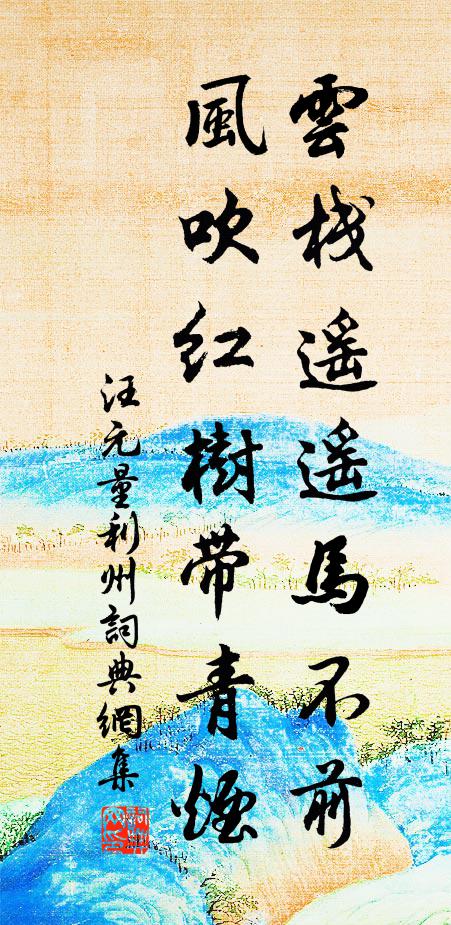 雲棧遥遥馬不前
風吹红樹带青煙
汪元量利州詞典網集